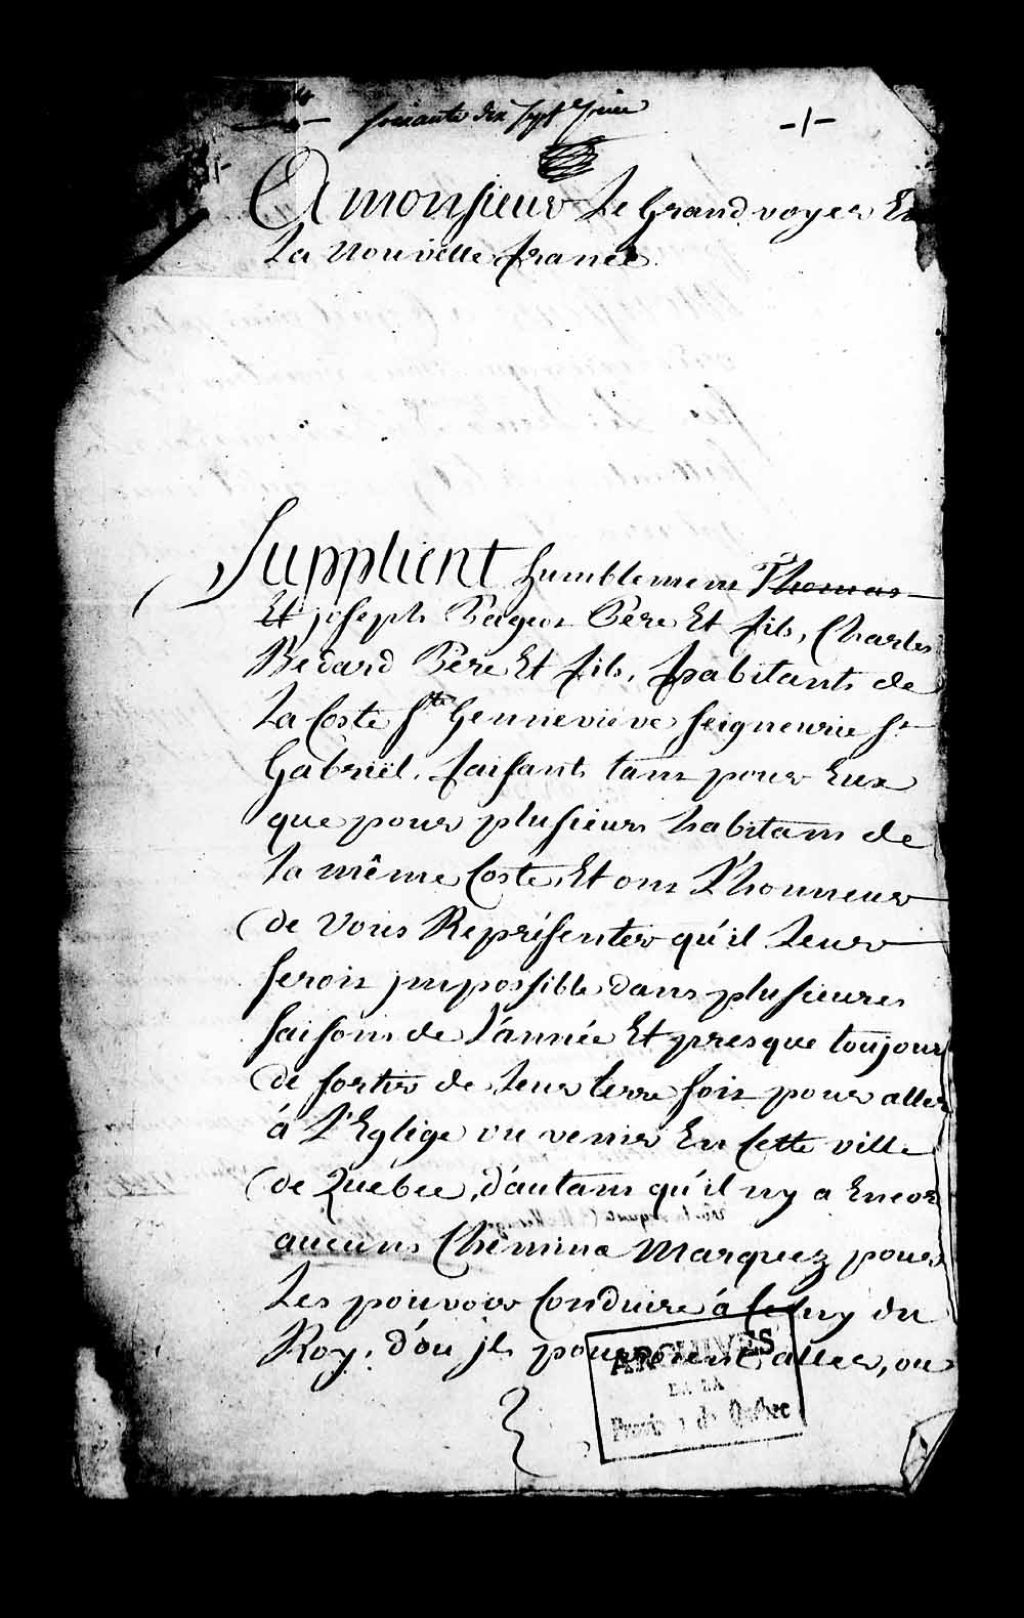 Soixante dix sept yeme
-1-
A monsieur Le Grand voyer En
La Nouvelle france
Supplient humblement Thomas
Et joseph Pageot Pere Et fils, Charles
Bedard Pere Et fils, habitants de
La Coste Ste Genneviéve Seigneurie St
Gabriël, faisants tant pour Eux
que pour plusieurs habitans de
La même Coste, Et ont L'honneur
de Vous Représenter qu'il Leur
seroit jmpossible dans plusieures
saisons de L'année Et presque toujours
de sortir de Leur terre soit pour aller
à L'Eglige ou venir En Cette ville
de Québec, d'autant qu'il ny a Encor
aucuns Chemins Marquez pour
Les pouvoir Conduire à Celuy du
Roy, d'ou jls pourroient aller, ou
ARCHIVES
DE LA
Province de Québec